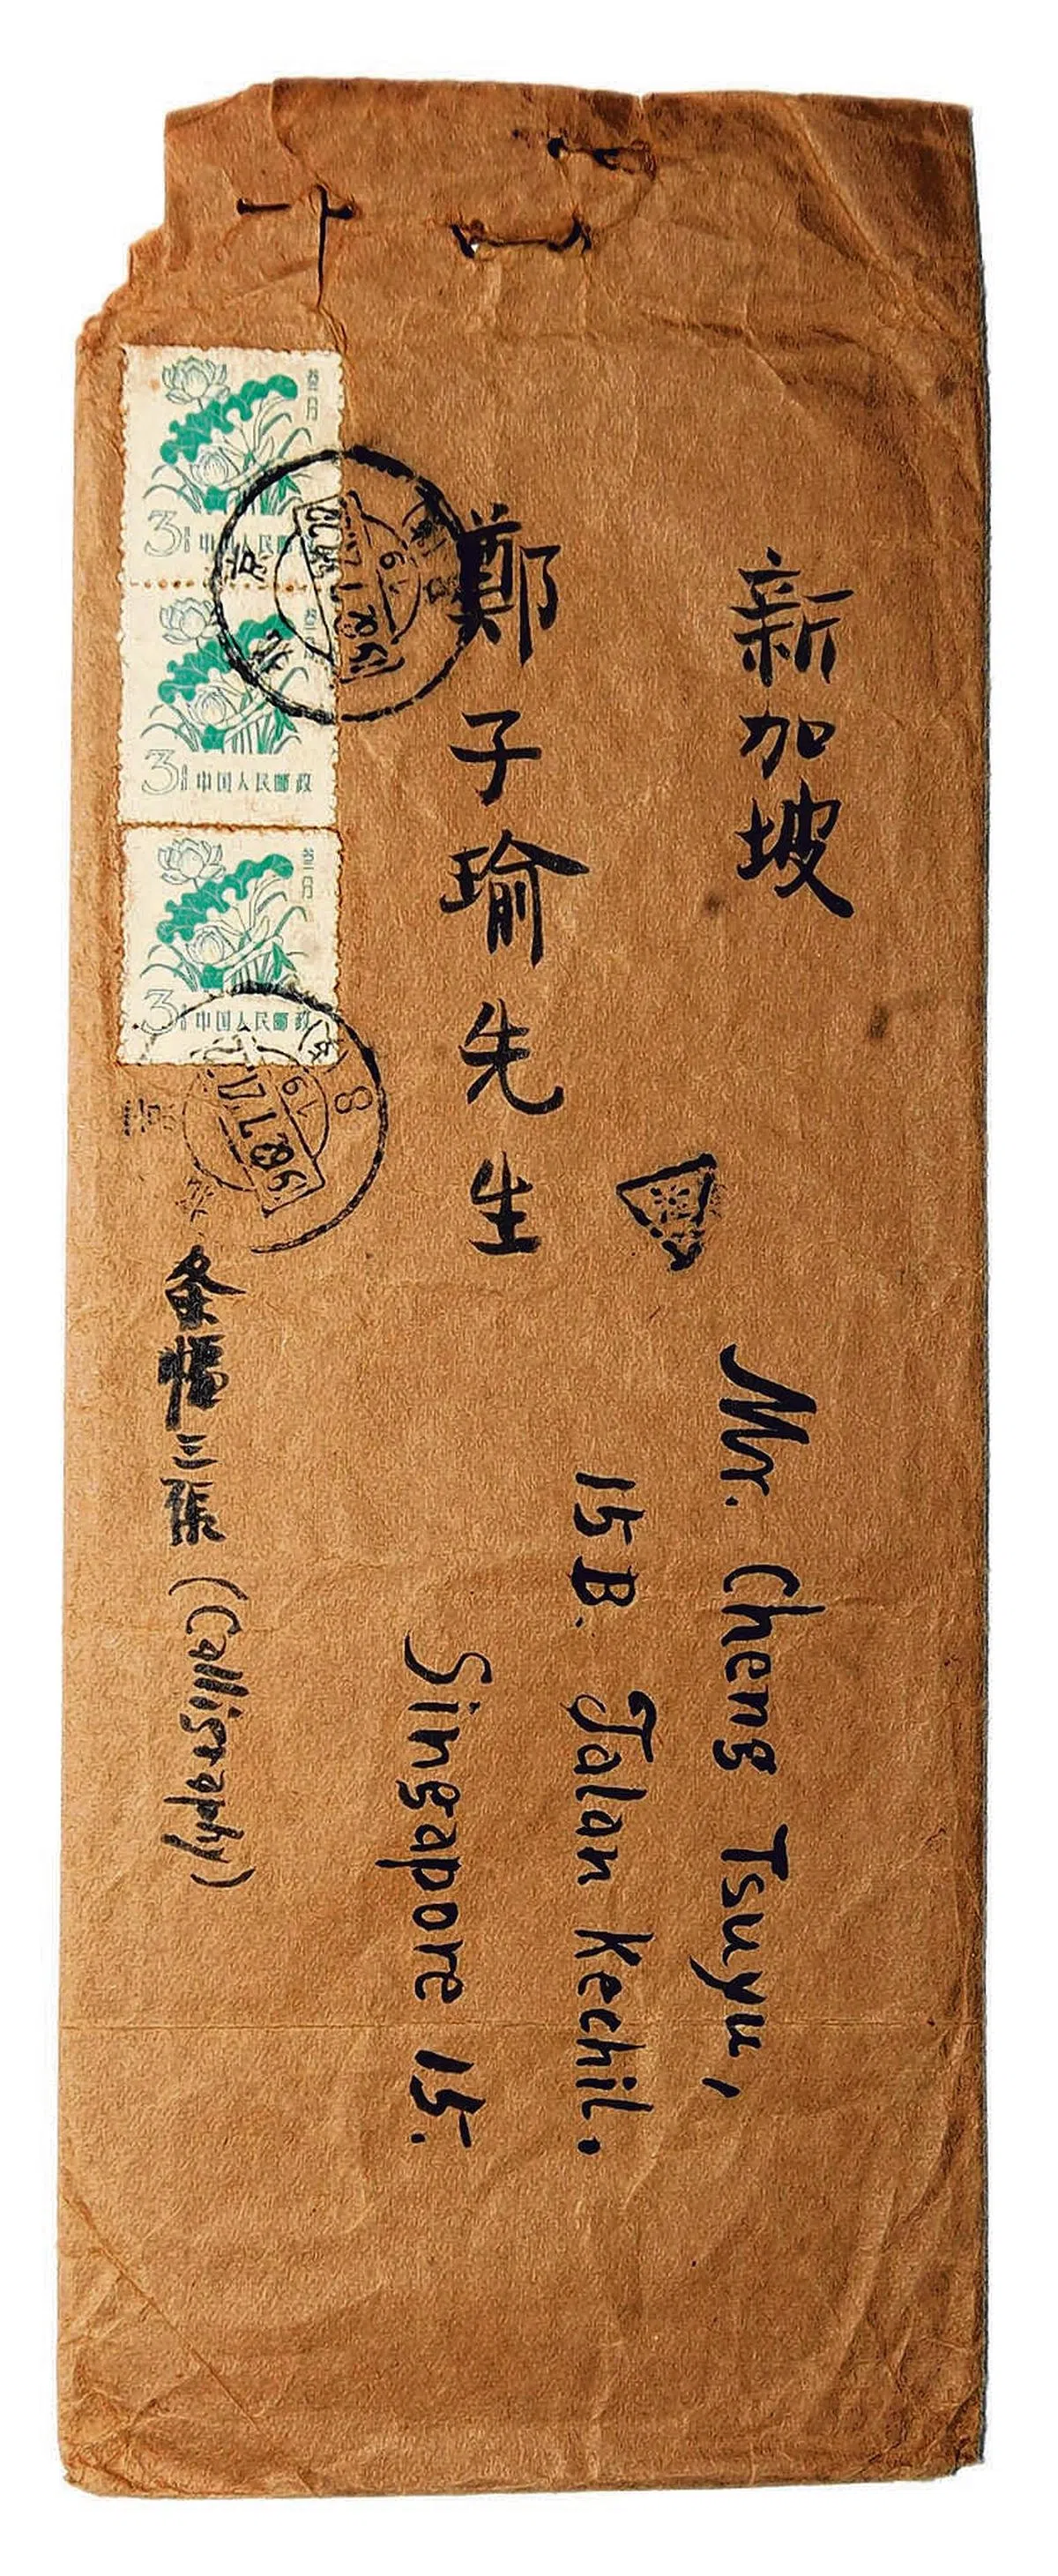 新加坡
鄭子瑜先生
Mr. Cheng Tsuyu,
15B. Jalan Kechil.
Singapore 15.
条幅三张 (Calligraphy)
叁分
3 中国人民邮政
叁分
3 中国人民邮政
叁分
3 中国人民邮政
北京
8